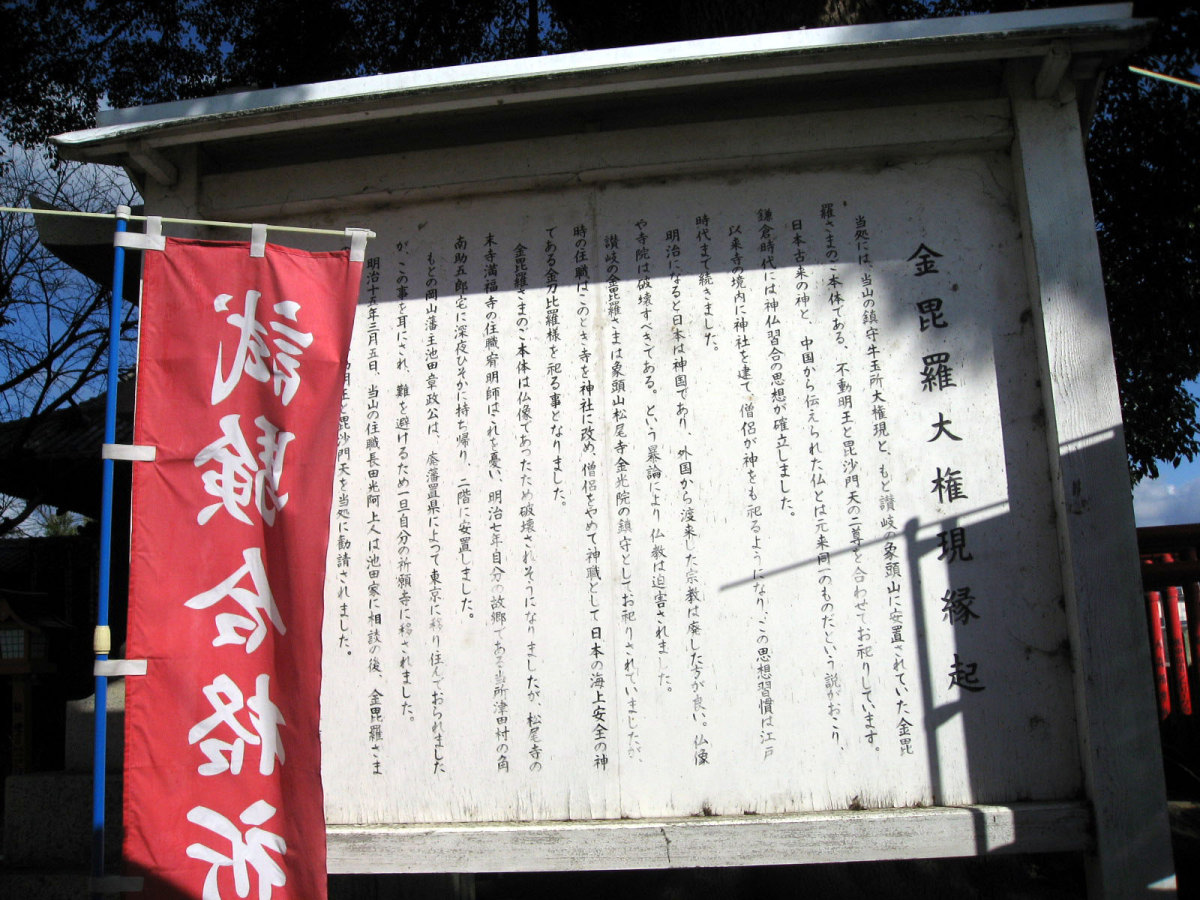 金毘羅大権現縁起
当処には、当山の鎮守牛玉所大権現と、もと讃岐の象頭山に安置されていた金毘
羅さまのご本体である、不動明王と毘沙門天の二尊を合わせてお祀りしています。
日本古来の神と、中国から伝えられた仏とは元来同一のものだという説がおこり、
鎌倉時代には神仏習合の思想が確立しました。
以来寺の境内に神社を建て、僧侶が神をも祀るようになり、この思想習慣は江戸
時代まで続きました。
明治になると日本は神国であり、外国から渡来した宗教は廃した方が良い。仏像
や寺院は破壊すべきである。という暴論により仏教は迫害されました。
讃岐の金毘羅さまは象頭山松尾寺金光院の鎮守としてお祀りされていましたが、
時の住職はこのとき寺を神社に改め、僧侶をやめて神職として日本の海上安全の神
である金刀比羅様を祀る事となりました。
金毘羅さまのご本体は仏像であったため破壊されそうになりましたが、松尾寺の
末寺満福寺の住職宥明師はこれを憂い、明治七年自分の故郷である当所津田村の角
南助五郎宅に深夜ひそかに持ち帰り、二階に安置しました。
もとの岡山藩主池田章政公は、廃藩置県によって東京に移り住んでおられました
が、この事を耳にされ、難を避けるため一旦自分の祈願寺に移されました。
明治十五年三月五日、当山の住職長田光阿上人は池田家に相談の後、金毘羅さま
明王と毘沙門天を当処に勧請されました。
試験合格祈